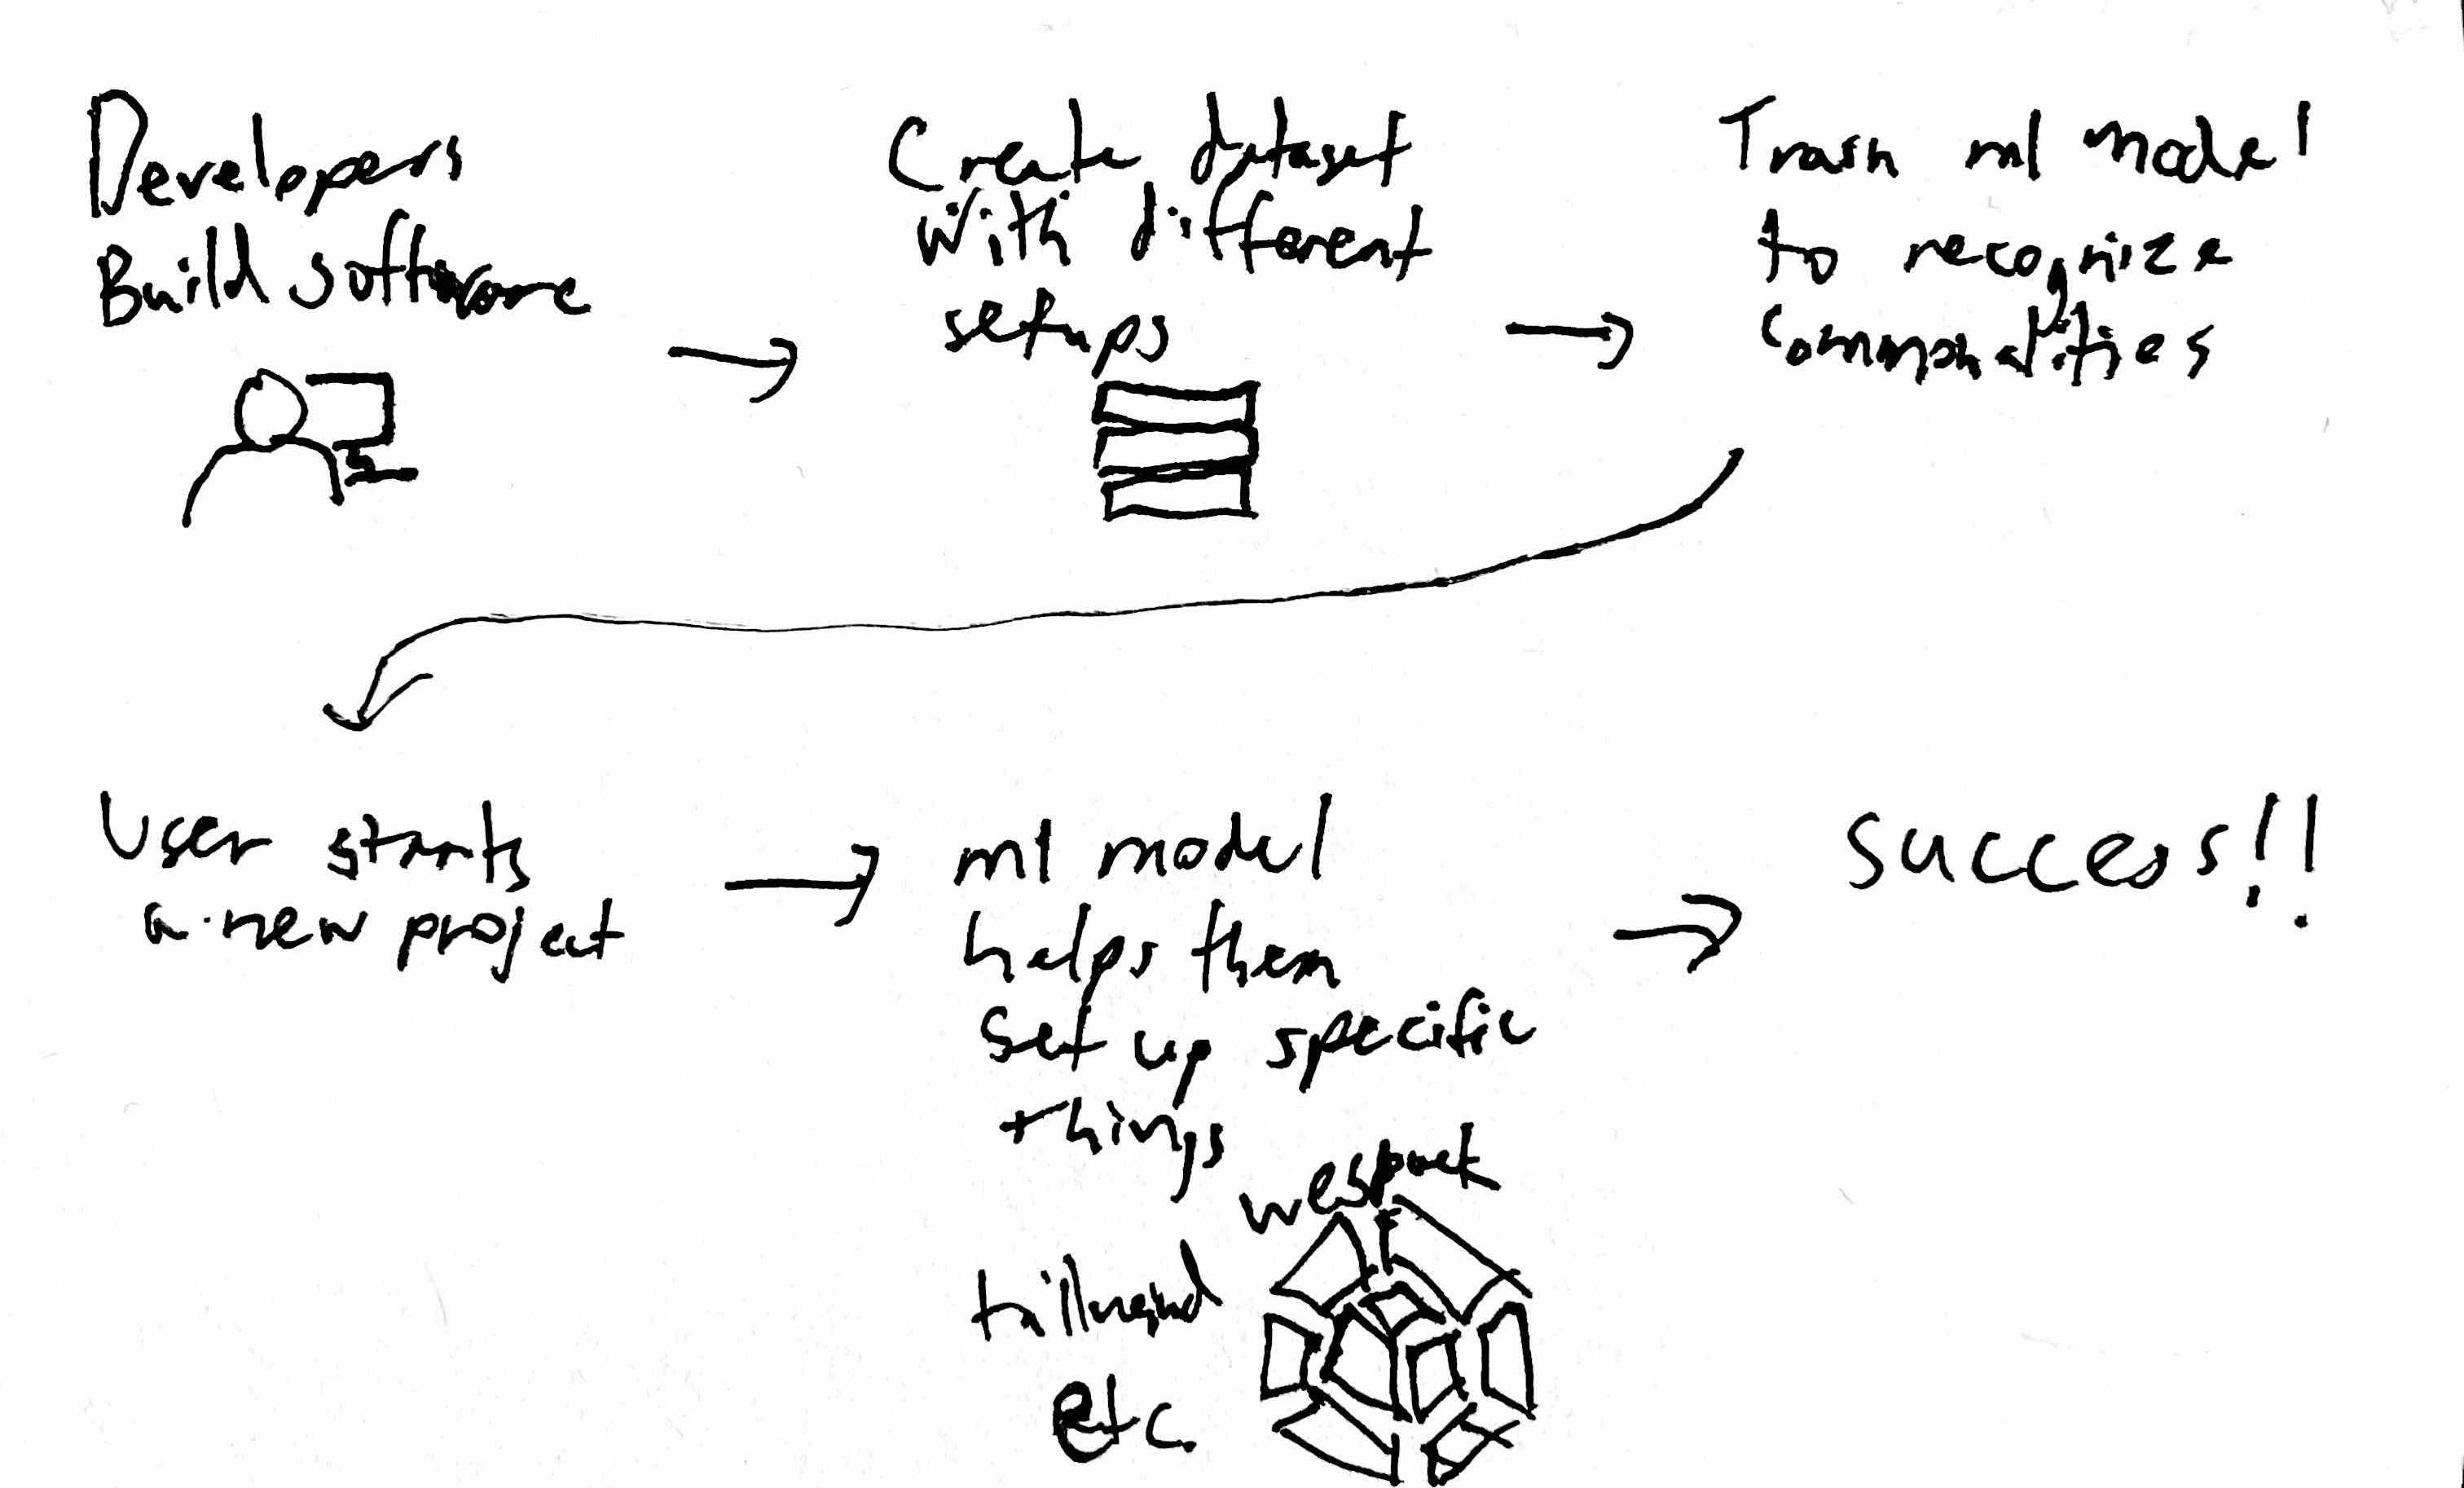 Developers
Build software
Create dataset
With different
setups
Train ml model
to recognize
commonalities
User starts
a new project
ml model
helps them
set up specific
things
wespack
etc.
success!!